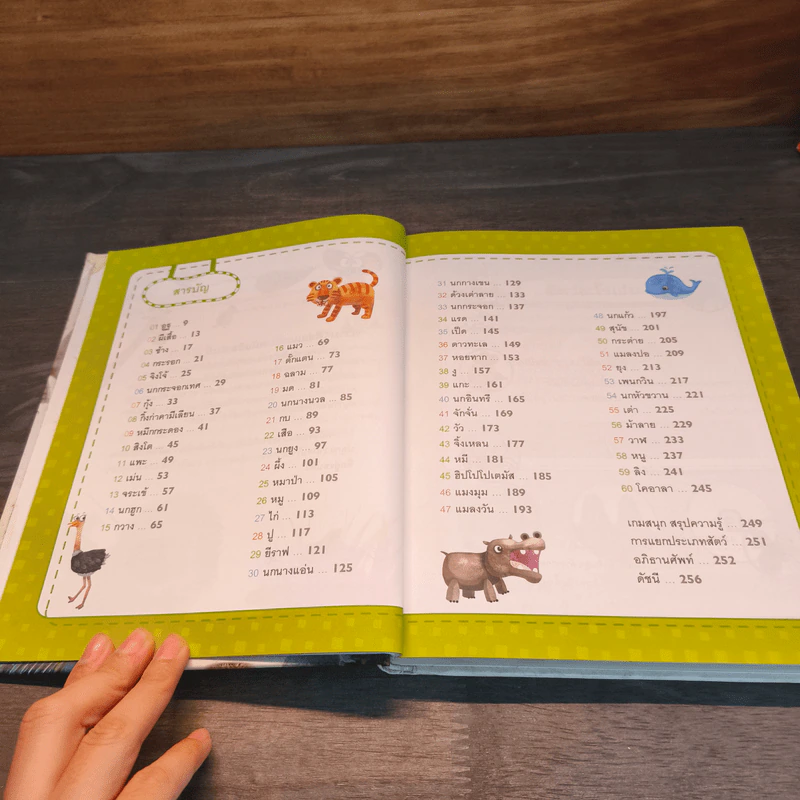 สารบัญ
01 อูฐ ... 9
02 ผีเสื้อ ... 13
03 ช้าง ... 17
04 กระรอก ... 21
05 จิงโจ้ ... 25
06 นกกระจอกเทศ ... 29
07 กุ้ง ... 33
08 กิ้งก่าคามีเลียน ... 37
09 หมึกกระดอง ... 41
10 สิงโต ... 45
11 แพะ ... 49
12 เม่น ... 53
13 จระเข้ ... 57
14 นกฮูก ... 61
15 กวาง ... 65
16 แมว ... 69
17 ตั๊กแตน ... 73
18 ฉลาม ... 77
19 มด ... 81
20 นกนางนวล ... 85
21 กบ ... 89
22 เสือ ... 93
23 นกยูง ... 97
24 ผึ้ง ... 101
25 หมาป่า ... 105
26 หมู ... 109
27 ไก่ ... 113
28 ปู ... 117
29 ยีราฟ ... 121
30 นกนางแอ่น ... 125
31 นกกางเขน ... 129
32 ด้วงเต่าลาย ... 133
33 นกกระจอก ... 137
34 แรด ... 141
35 เป็ด ... 145
36 ดาวทะเล ... 149
37 หอยทาก ... 153
38 งู ... 157
39 แกะ ... 161
40 นกอินทรี ... 165
41 จักจั่น ... 169
42 วัว ... 173
43 จิ้งเหลน ... 177
44 หมี ... 181
45 ฮิปโปโปเตมัส ... 185
46 แมงมุม ... 189
47 แมลงวัน ... 193
48 นกแก้ว ... 197
49 สุนัข ... 201
50 กระต่าย ... 205
51 แมลงปอ ... 209
52 ยุง ... 213
53 เพนกวิน ... 217
54 นกหัวขวาน ... 221
55 เต่า ... 225
56 ม้าลาย ... 229
57 วาฬ ... 233
58 หนู ... 237
59 ลิง ... 241
60 โคอาลา ... 245
เกมสนุก สรุปความรู้ ... 249
การแยกประเภทสัตว์ ... 251
อภิธานศัพท์ ... 252
ดัชนี ... 256